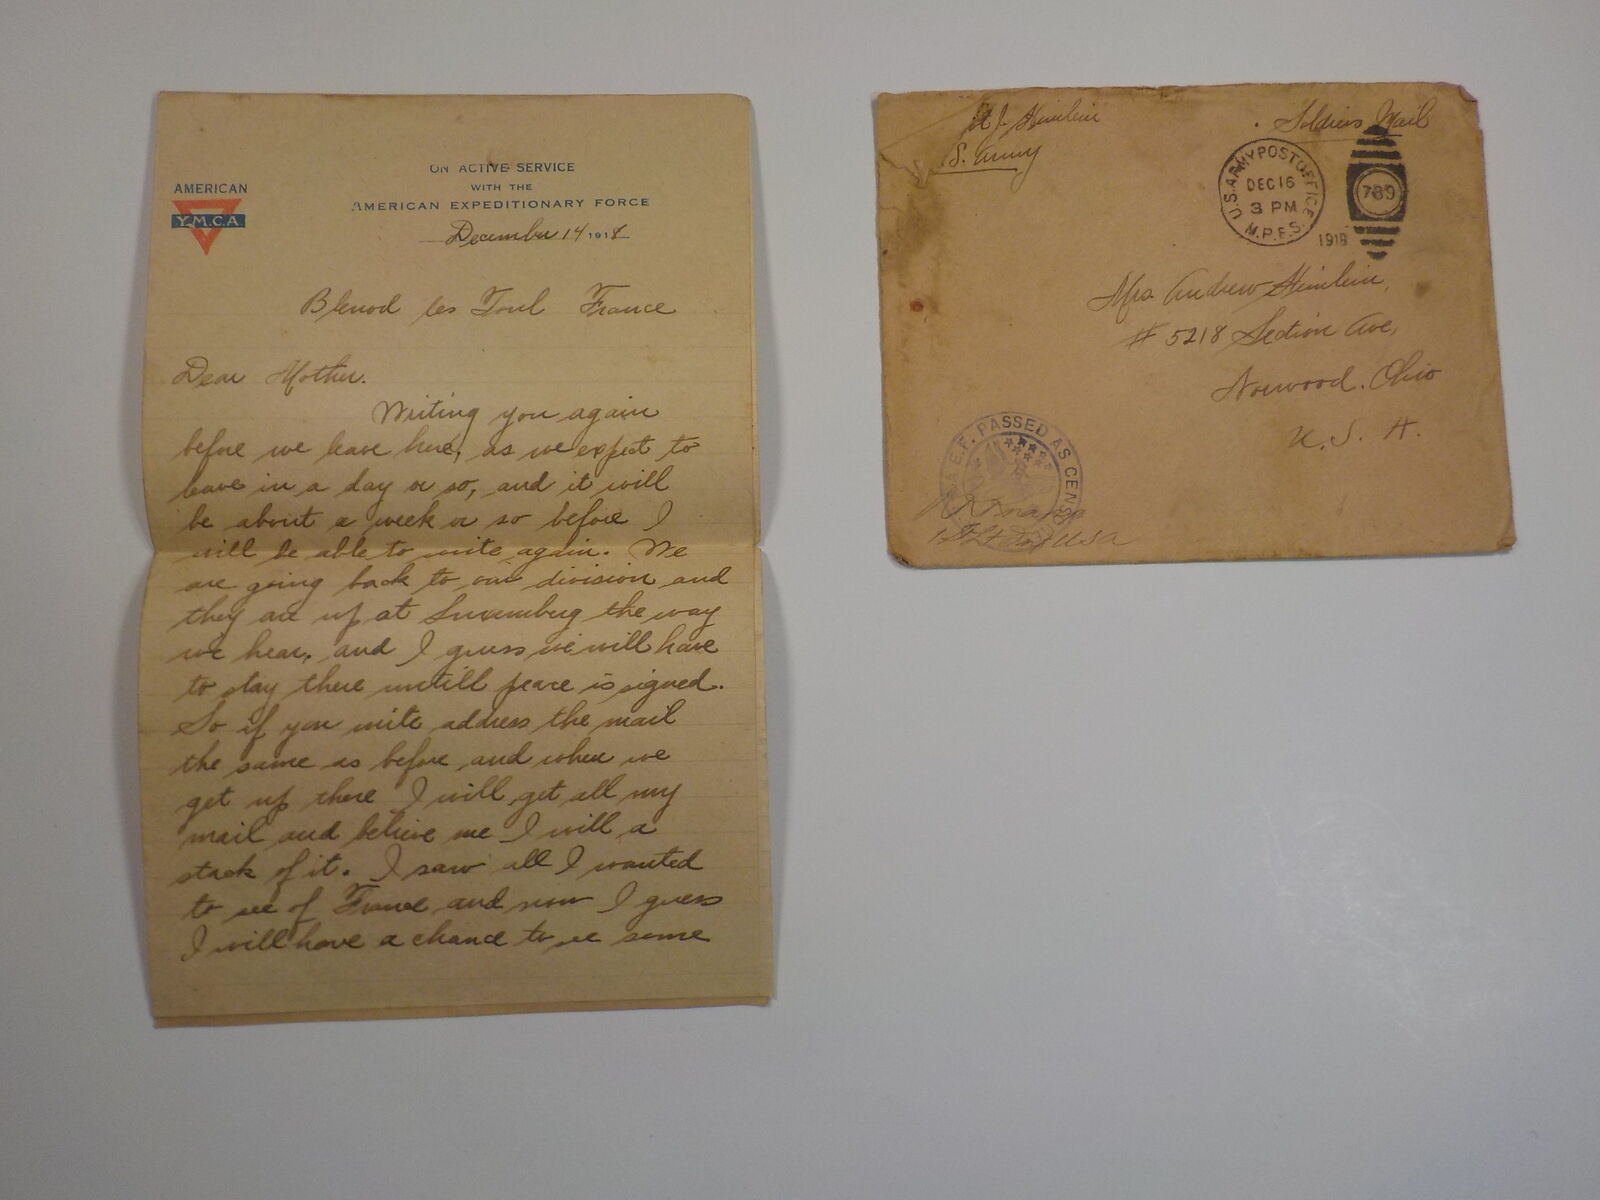 AMERICAN
Y.M.C.A
ON ACTIVE SERVICE
WITH THE
AMERICAN EXPEDITIONARY FORCE
December 14 1918
Blenod les Toul France
Dear Mother.
Writing you again
before we leave here, as we expect to
leave in a day or so, and it will
be about a week or so before I
will be able to write again. We
are going back to our division and
they are up at Luxemburg the way
we hear, and I guess we will have
to stay there untill peace is signed.
So if you write address the mail
the same as before and when we
get up there I will get all my
mail and believe me I will a
stack of it. I saw all I wanted
to see of France and now I guess
I will have a chance to see some
J. Heinlein
S. Army
Soldiers Mail
U.S. ARMY POST OFFICE
DEC 16
3 PM
M.P.E.S.
1918
789
Mrs. Andrew Heinlein,
# 5218 Section Ave,
Norwood. Ohio
U. S. A.
A.E.F. PASSED AS CENSORED
1st Lt USA